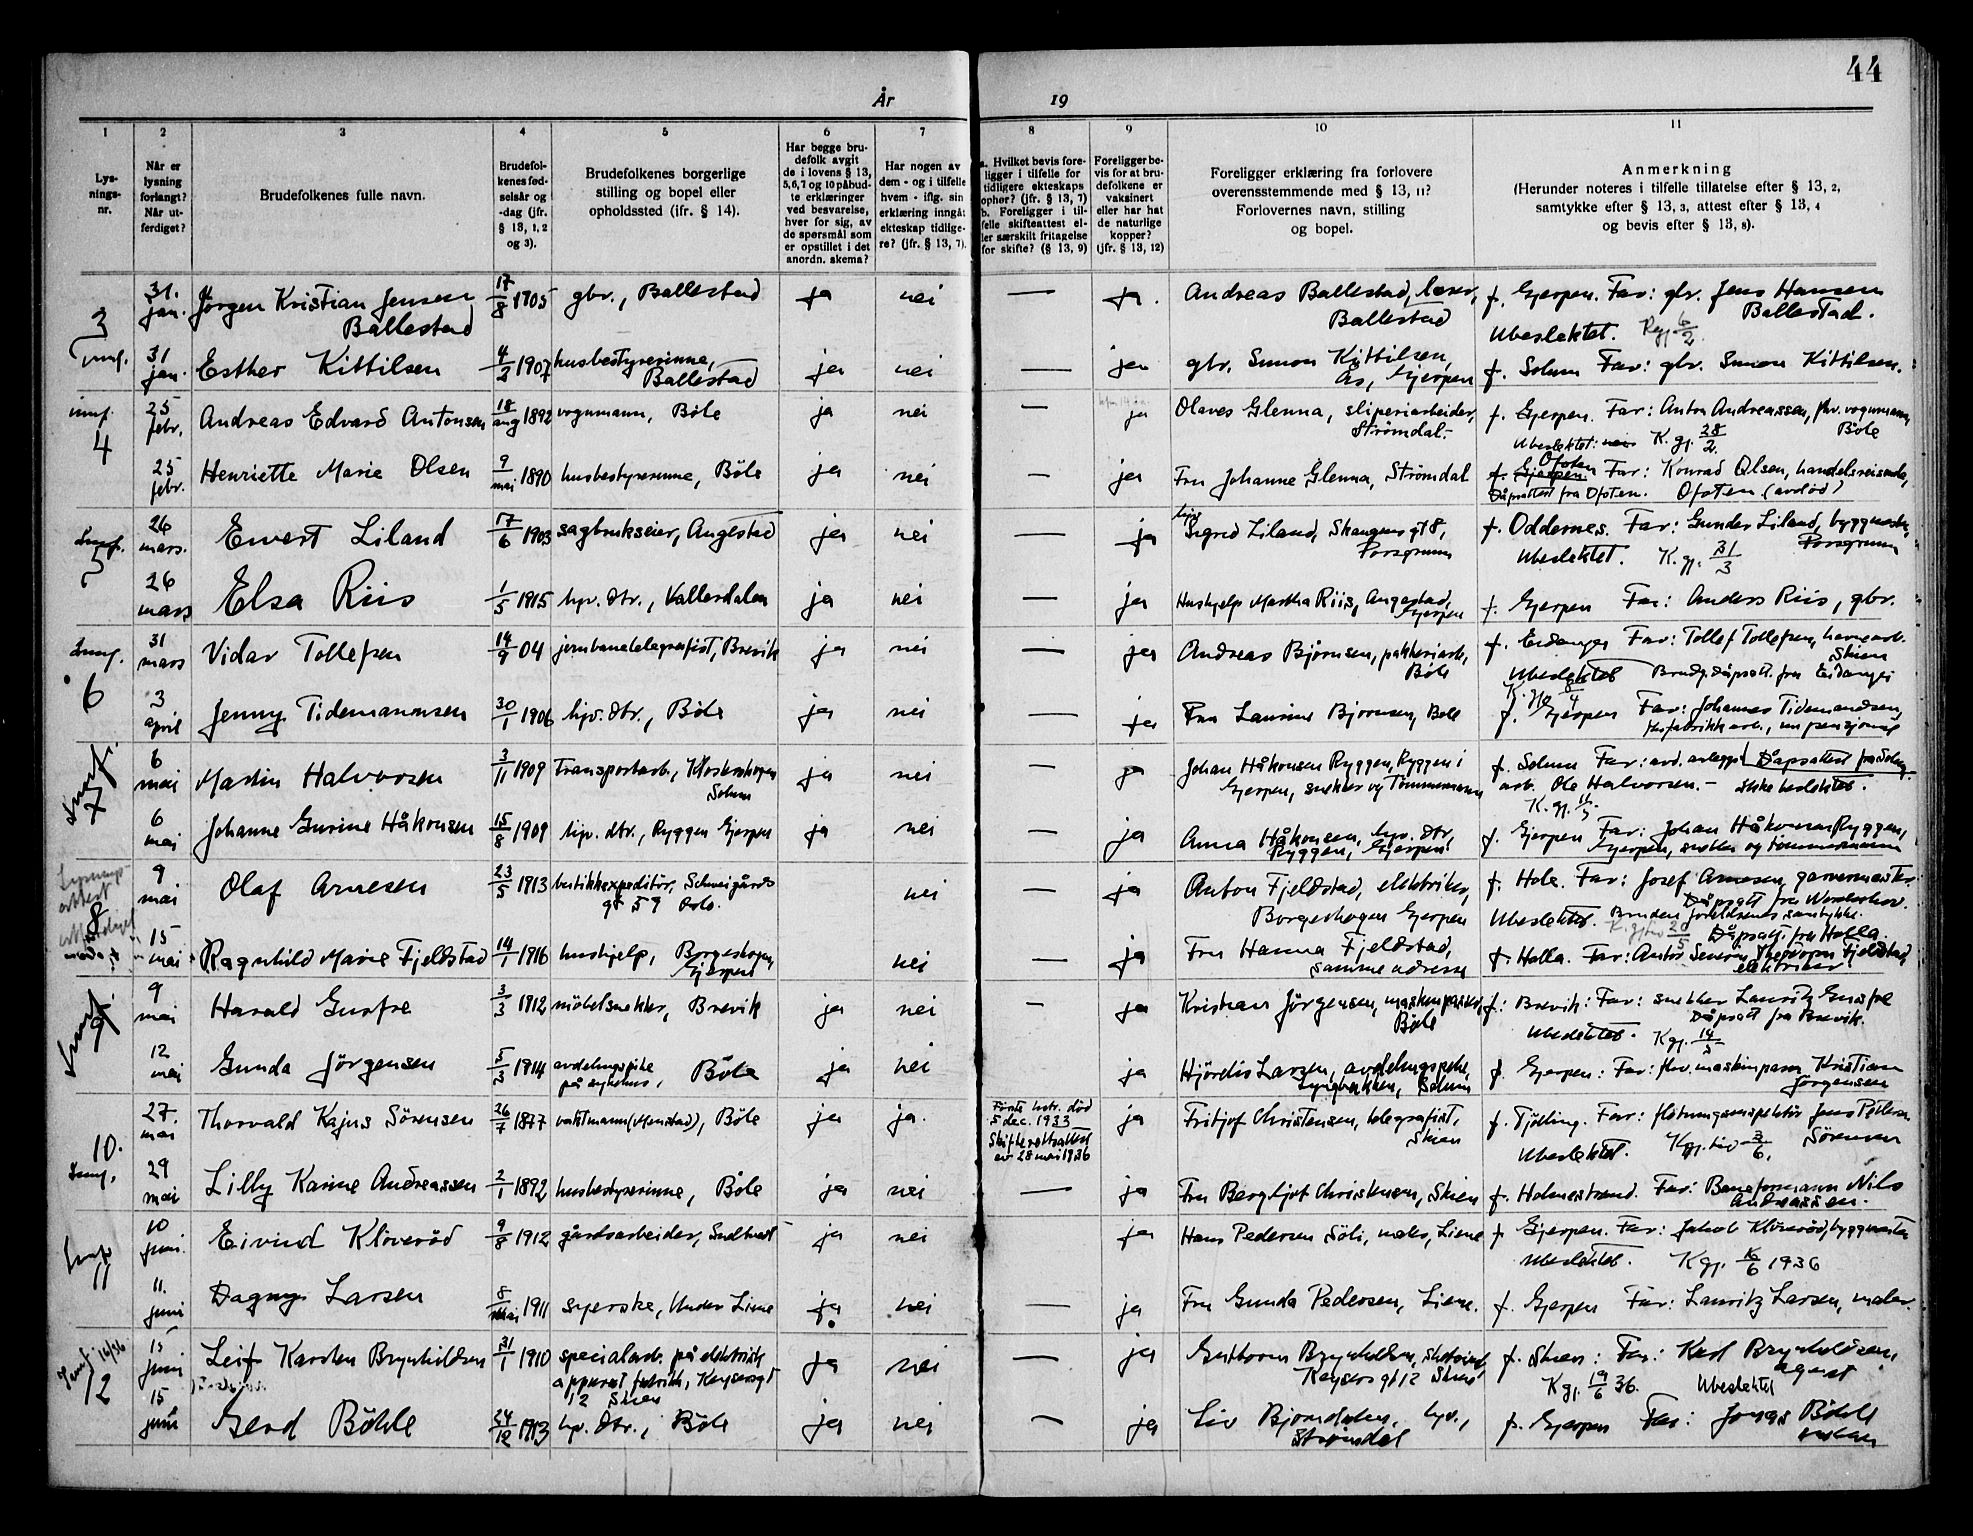 44
År 19
1
2
3
4
5
6
7
8
9
10
11
Lys-
nings-
nr.
Når er
lysning
forlangt?
Når ut-
ferdiget?
Brudefolkenes fulle navn.
Brudefol-
kenes fød-
selsår og
-dag (jfr.
§ 13, 1, 2
og 3).
Brudefolkenes borgerlige
stilling og bopel eller
opholdssted (ifr. § 14).
Har begge bru-
defolk avgit
de i lovens § 13,
5, 6, 7 og 10 påbud-
te erklæringer
ved besvarelse,
hver for sig, av
de spørsmål som
er opstillet i det
anordn. skema?
Har nogen av
dem - og i tilfelle
hvem - iflg. sin
erklæring inngåt
ekteskap tidlige-
re? (jfr. § 13, 7).
a. Hvilket bevis fore-
ligger i tilfelle for
tidligere ekteskaps
ophør? (jfr. § 13, 7)
b. Foreligger i til-
felle skifteattest el-
ler særskilt fritagelse
for skifte? (§ 13, 9)
Foreligger be-
vis for at bru-
defolkene er
vaksinert
eller har hat
de naturlige
kopper?
(jfr. § 13, 12)
Foreligger erklæring fra forlovere
overensstemmende med § 13, 11?
Forlovernes navn, stilling
og bopel.
Anmerkning
(Herunder noteres i tilfelle tillatelse efter § 13, 2,
samtykke efter § 13, 3, attest efter § 13, 4
og bevis efter § 13, 8).
3 31. jan. Jørgen Kristian Jensen 17/8 1905 gbr., Ballestad ja nei — ja. Andreas Ballestad, lærer, f. Gjerpen. Far: gbr. Jens Hansen
Ballestad Ballestad Ballestad.
Ubeslektet. Kgj. 6/2.
31 jan. Esther Kittilsen 4/2 1907 husbestyrerinne, ja nei — ja gbr. Simon Kittilsen, f. Solum Far: gbr. Simon Kittilsen.
Ballestad Ås, Gjerpen
4 25 febr. Andreas Edvard Antonsen 18/aug 1892 vognmann, Böle ja nei — ja Olaves Glenna, sliperiarbeider, f. Gjerpen. Far: Anton Andreassen, fhv. vognmann,
Strömdal. Böle
Ubeslektet. K. gj. 28/2.
25 febr. Henriette Marie Olsen 9/mai 1890 husbestyrerinne, Böle ja nei — ja Fru Johanne Glenna, Strömdal f. Gjerpen Ofoten Far: Konrad Olsen, handelsreisende,
Dåpsattest fra Ofoten. Ofoten (avdöd)
5 26 mars. Ewert Liland 17/6 1903 sagbrukseier, Augestad ja nei — ja Sigrid Liland, gt 8, f. Oddernes. Far: Gunder Liland,
Porsgrunn Porsgrunn
Ubeslektet. K. gj. 31/3
26 mars Elsa Riis 1/5 1915 hjv. dtr., Vallerdalen ja nei — ja Hushjelp Martha Riis, f. Gjerpen Far: Anders Riis, gbr.
Gjerpen
6 31 mars Vidar Tollefsen 14/9 04 jernbanetelegrafist, Brevik ja nei — ja Andreas Björnsen, f. Eidanger Far: Tollef Tollefsen, havnearb.
Böle Skien
Ubeslektet dåpsatt. fra Eidanger
3 april Jenny Tidemannsen 30/1 1906 hjv. dtr., Böle ja nei — ja Fru Laurine Björnsen, Böle f. Gjerpen Far: Johannes Tidemandsen,
7 6 mai Martin Halvorsen 3/11 1909 Transportarb., Klosterskogen ja nei — ja Johan Håkonsen Ryggen, Ryggen i f. Solum Far: Dåpsattest fra Solum.
Solum Gjerpen, snekker og Tömmermann arb. Ole Halvorsen. — ikke beslektet.
K. gj.
6 mai Johanne Gurine Håkonsen 15/8 1909 hjv. dtr., Ryggen Gjerpen ja nei — ja Anna Håkonsen, hjv. dtr., f. Gjerpen Far: Johan Håkonsen Ryggen,
Ryggen, Gjerpen Gjerpen, snekker og tömmermann
8 9 mai Olaf Arnesen 23/5 1913 butikkexpeditör, Schweigårds nei — ja Anton Fjeldstad, elektriker, f. Hole. Far: Josef Arnesen, garvermester
gt 59 Oslo. Borgeskogen Gjerpen Ubeslektet. Bruden foreldrenes samtykke.
Dåpsatt. fra Holla.
15 mai Ragnhild Marie Fjeldstad 14/1 1916 hushjelp, Borgeskogen, nei — ja Fru Hanna Fjeldstad, f. Holla. Far: Anton Severin Fjeldstad
Gjerpen samme adresse elektriker
9 9 mai Harald Gusfre 3/3 1912 möbelsnekker, Brevik ja nei — ja Kristian Jörgensen, maskinpasser, f. Brevik: Far: snekker Lauritz Gusfre
Böle Dåpsatt fra Brevik.
Ubeslektet. Kgj. 14/5
12 mai Gunda Jörgensen 5/3 1914 avdelingspike ja nei ja Hjördis Larsen, avdelingspike, f. Gjerpen: Far: fhv. maskinpasser Kristian
på sykehus, Böle Solum Jörgensen
10. 27. mai Thorvald Kajus Sörensen 26/7 1877 vaktmann (Menstad), Böle ja ja. Første hstr. död ja Fritjof Christensen, telegrafist, f. Tjölling. Far: Jens Petter
5 dec. 1933 Skien Sörensen
Skifteattest
av 28 mai 1936 Ubeslektet. Kgj. 3/6.
29 mai Lilly Karine Andreassen 2/1 1892 husbestyrerinne, Böle ja nei — ja Fru Bergljot Christensen, Skien f. Holmestrand. Far: Baneformann Nils
Andreassen.
11 10 juni. Eivind Klöveröd 9/8 1912 gårdsarbeider, ja nei ja Hans Pedersen Söli, maler, Liene f. Gjerpen. Far: Jakob Klöveröd, byggmester
Ubeslektet. Kgj. 1936
11. juni Dagny Larsen 8/mai 1911 syerske, Under Liene ja nei — ja Fru Gunda Pedersen, Liene. f. Gjerpen Far: Lauritz Larsen, maler.
12 14/6 36 15 juni Leif Karsten Brynhildsen 31/1 1910 specialarb. på elektrisk ja nei — ja Guttorm Brynhildsen, f. Skien: Far: Karl Brynhildsen,
apparat fabrikk, Keysersgt Keysers gt 12 Skien agent
12 Skien Kgj. 19/6 36. Ubeslektet
15 juni Gerd Böhle 24/12 1913 hjv. dtr., Böle ja nei — ja Liv Bjorndalen, hjv., f. Gjerpen Far: Jonas Böhle
Strömdal